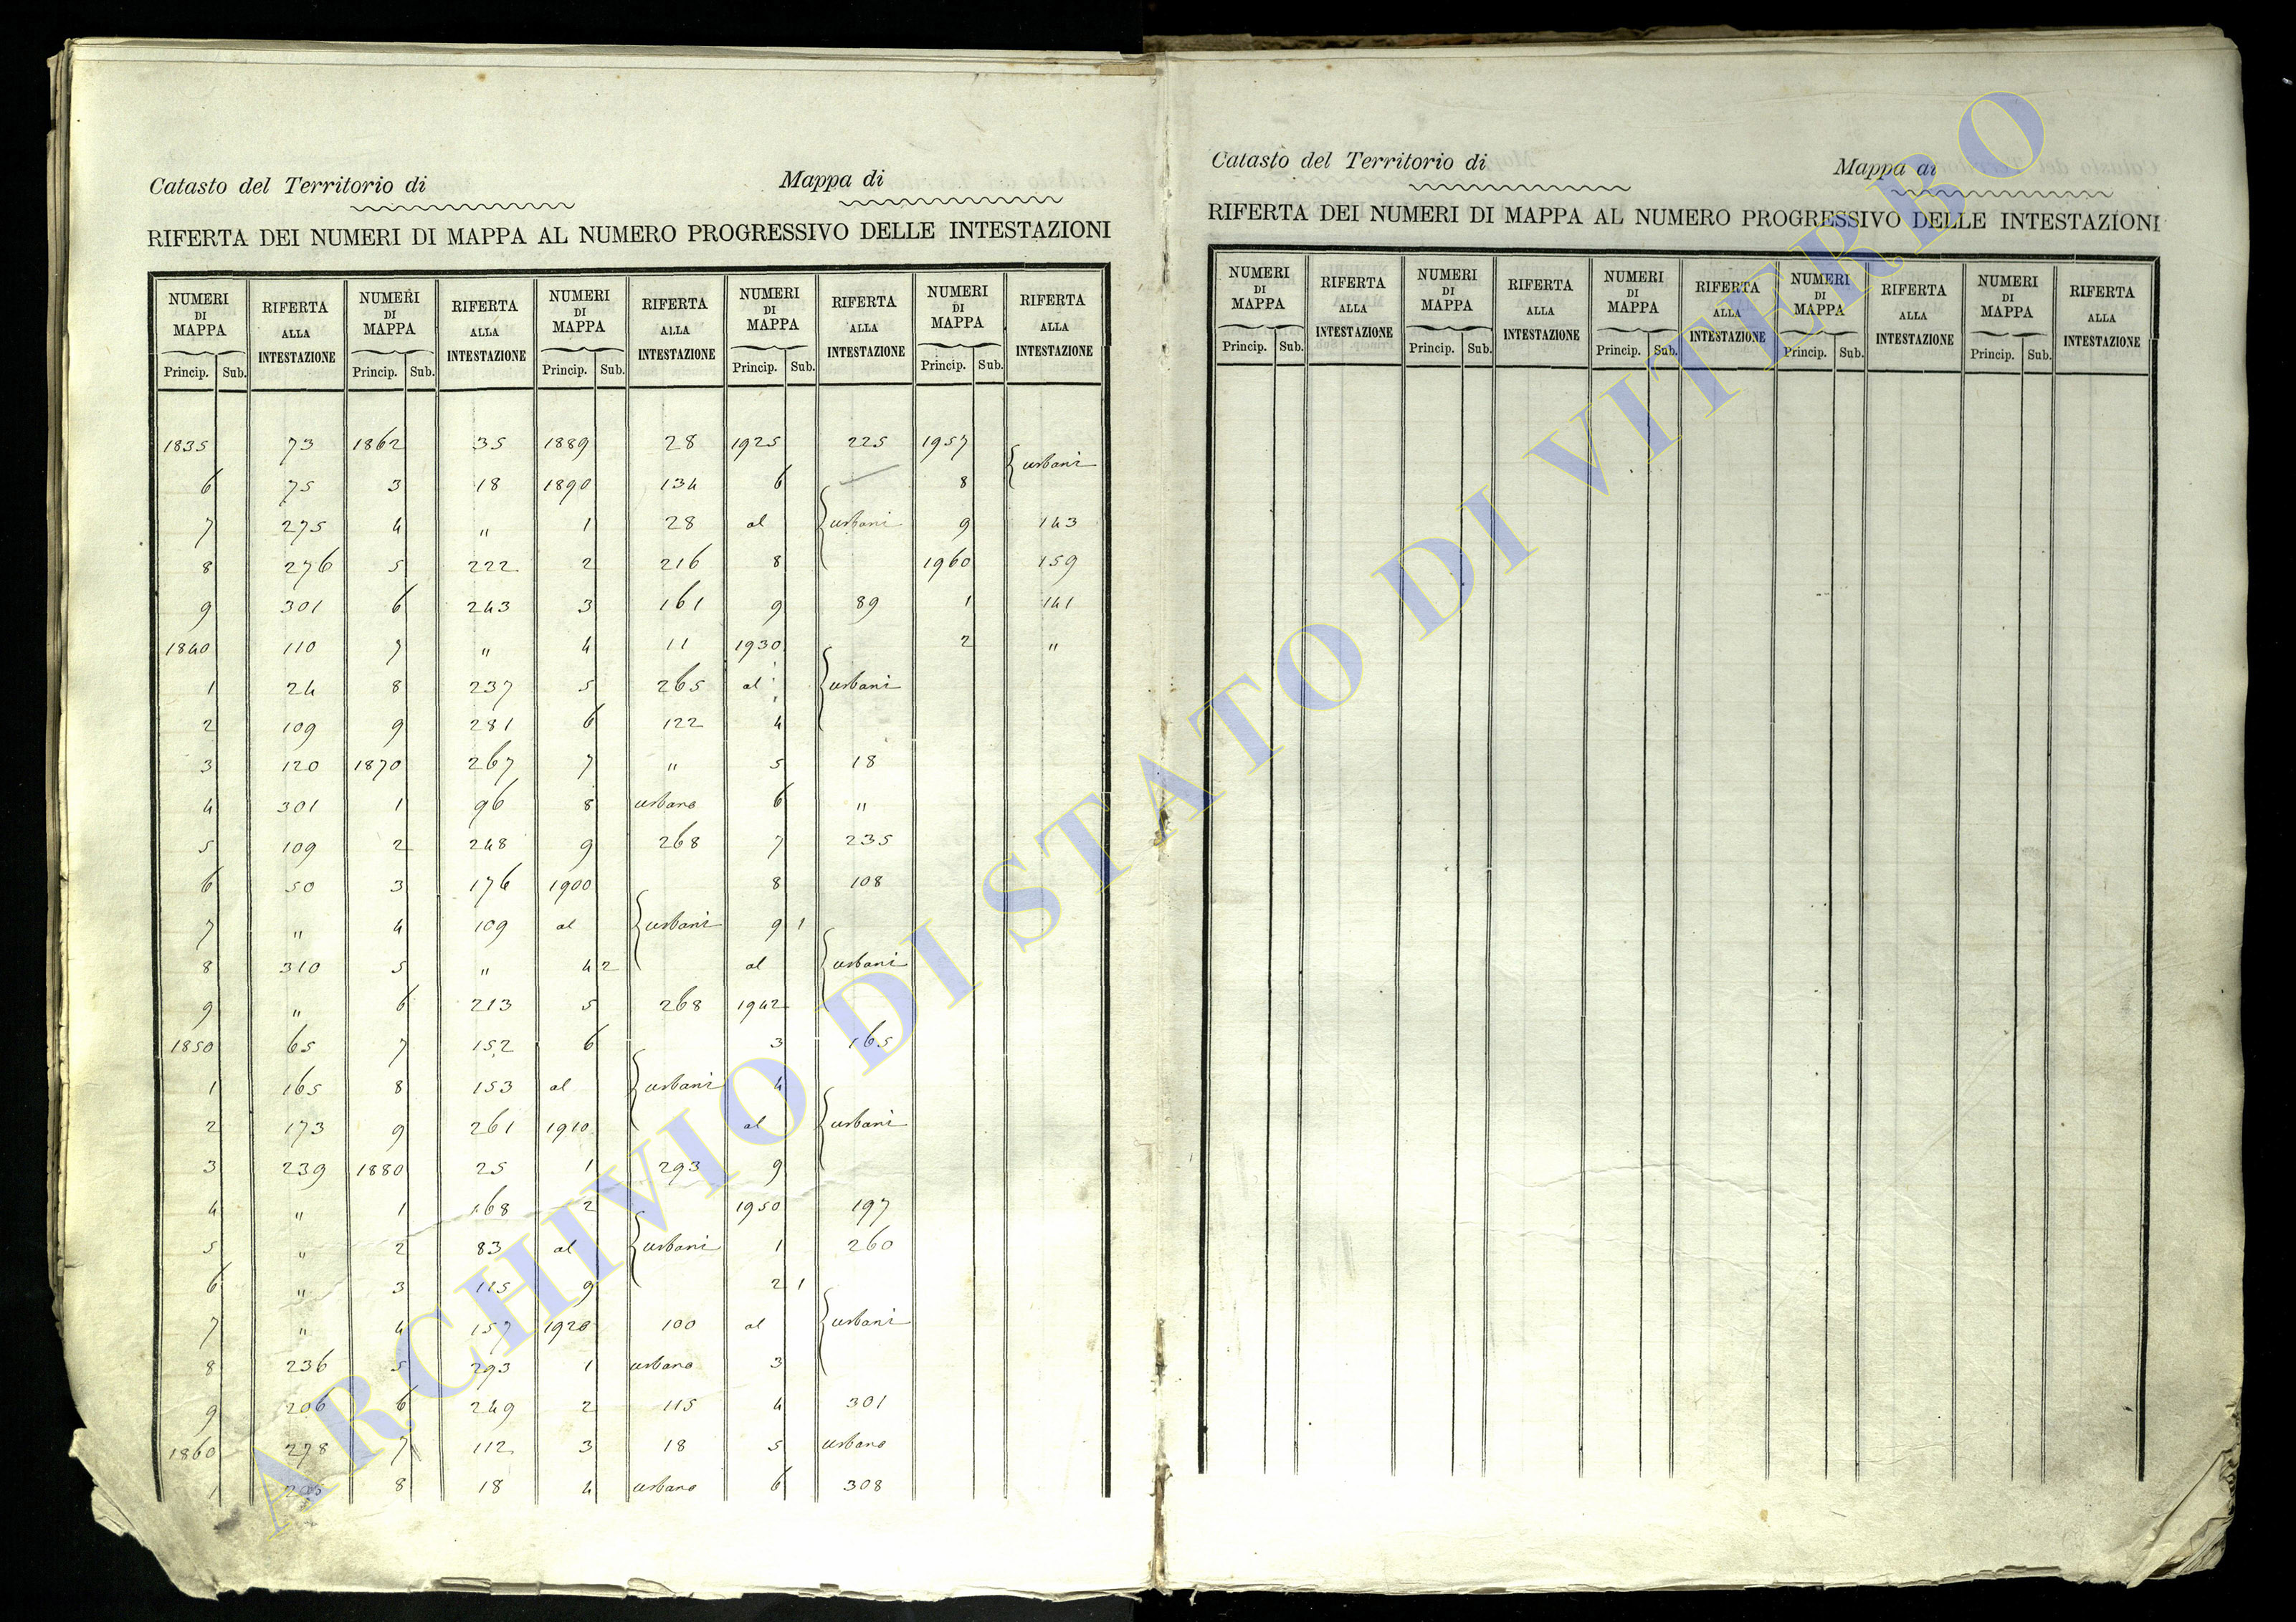 Catasto del Territorio di Mappa di
RIFERTA DEI NUMERI DI MAPPA AL NUMERO PROGRESSIVO DELLE INTESTAZIONI
NUMERI DI MAPPA RIFERTA ALLA INTESTAZIONE NUMERI DI MAPPA RIFERTA ALLA INTESTAZIONE NUMERI DI MAPPA RIFERTA ALLA INTESTAZIONE NUMERI DI MAPPA RIFERTA ALLA INTESTAZIONE NUMERI DI MAPPA RIFERTA ALLA INTESTAZIONE
Princip. Sub. Princip. Sub. Princip. Sub. Princip. Sub. Princip. Sub.
1835 73 1862 35 1889 28 1925 225 1957
6 75 3 18 1890 134 6 8 urbani
7 275 4 " 1 28 al urbani 9 143
8 276 5 222 2 216 8 1960 159
9 301 6 243 3 161 9 89 1 141
1840 110 7 " 4 11 1930 2 "
1 24 8 237 5 265 al urbani
2 109 9 281 6 122 4
3 120 1870 267 7 " 5 18
4 301 1 96 8 urbano 6 "
5 109 2 248 9 268 7 235
6 50 3 176 1900 8 108
7 " 4 109 al urbani 9 1
8 310 5 " 4 2 al urbani
9 " 6 213 5 268 1942
1850 65 7 152 6 3 165
1 165 8 153 al urbani 4
2 173 9 261 1910 al urbani
3 239 1880 25 1 293 9
4 " 1 168 2 1950 197
5 " 2 83 al urbani 1 260
6 " 3 115 9 2 1
7 " 4 157 1920 100 al urbani
8 236 5 293 1 urbano 3
9 206 6 249 2 115 4 301
1860 278 7 112 3 18 5 urbano
1 8 18 4 urbano 6 308
Catasto del Territorio di Mappa di
RIFERTA DEI NUMERI DI MAPPA AL NUMERO PROGRESSIVO DELLE INTESTAZIONI
NUMERI DI MAPPA RIFERTA ALLA INTESTAZIONE NUMERI DI MAPPA RIFERTA ALLA INTESTAZIONE NUMERI DI MAPPA RIFERTA ALLA INTESTAZIONE NUMERI DI MAPPA RIFERTA ALLA INTESTAZIONE NUMERI DI MAPPA RIFERTA ALLA INTESTAZIONE
Princip. Sub. Princip. Sub. Princip. Sub. Princip. Sub. Princip. Sub.
ARCHIVIO DI STATO DI VITERBO